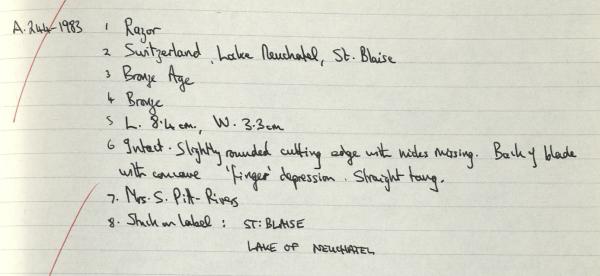 A.244-1983 1 Razor
2 Switzerland, Lake Neuchatel, St. Blaise
3 Bronze Age
4 Bronze
5 L. 8.4cm., W. 3.3cm
6 Intact. Slightly rounded cutting edge with nicks missing. Back of blade
with concave 'finger' depression. Straight tang.
7. Mrs. S. Pitt-Rivers
8. Stuck on Label : ST: BLAISE
LAKE OF NEUCHATEL